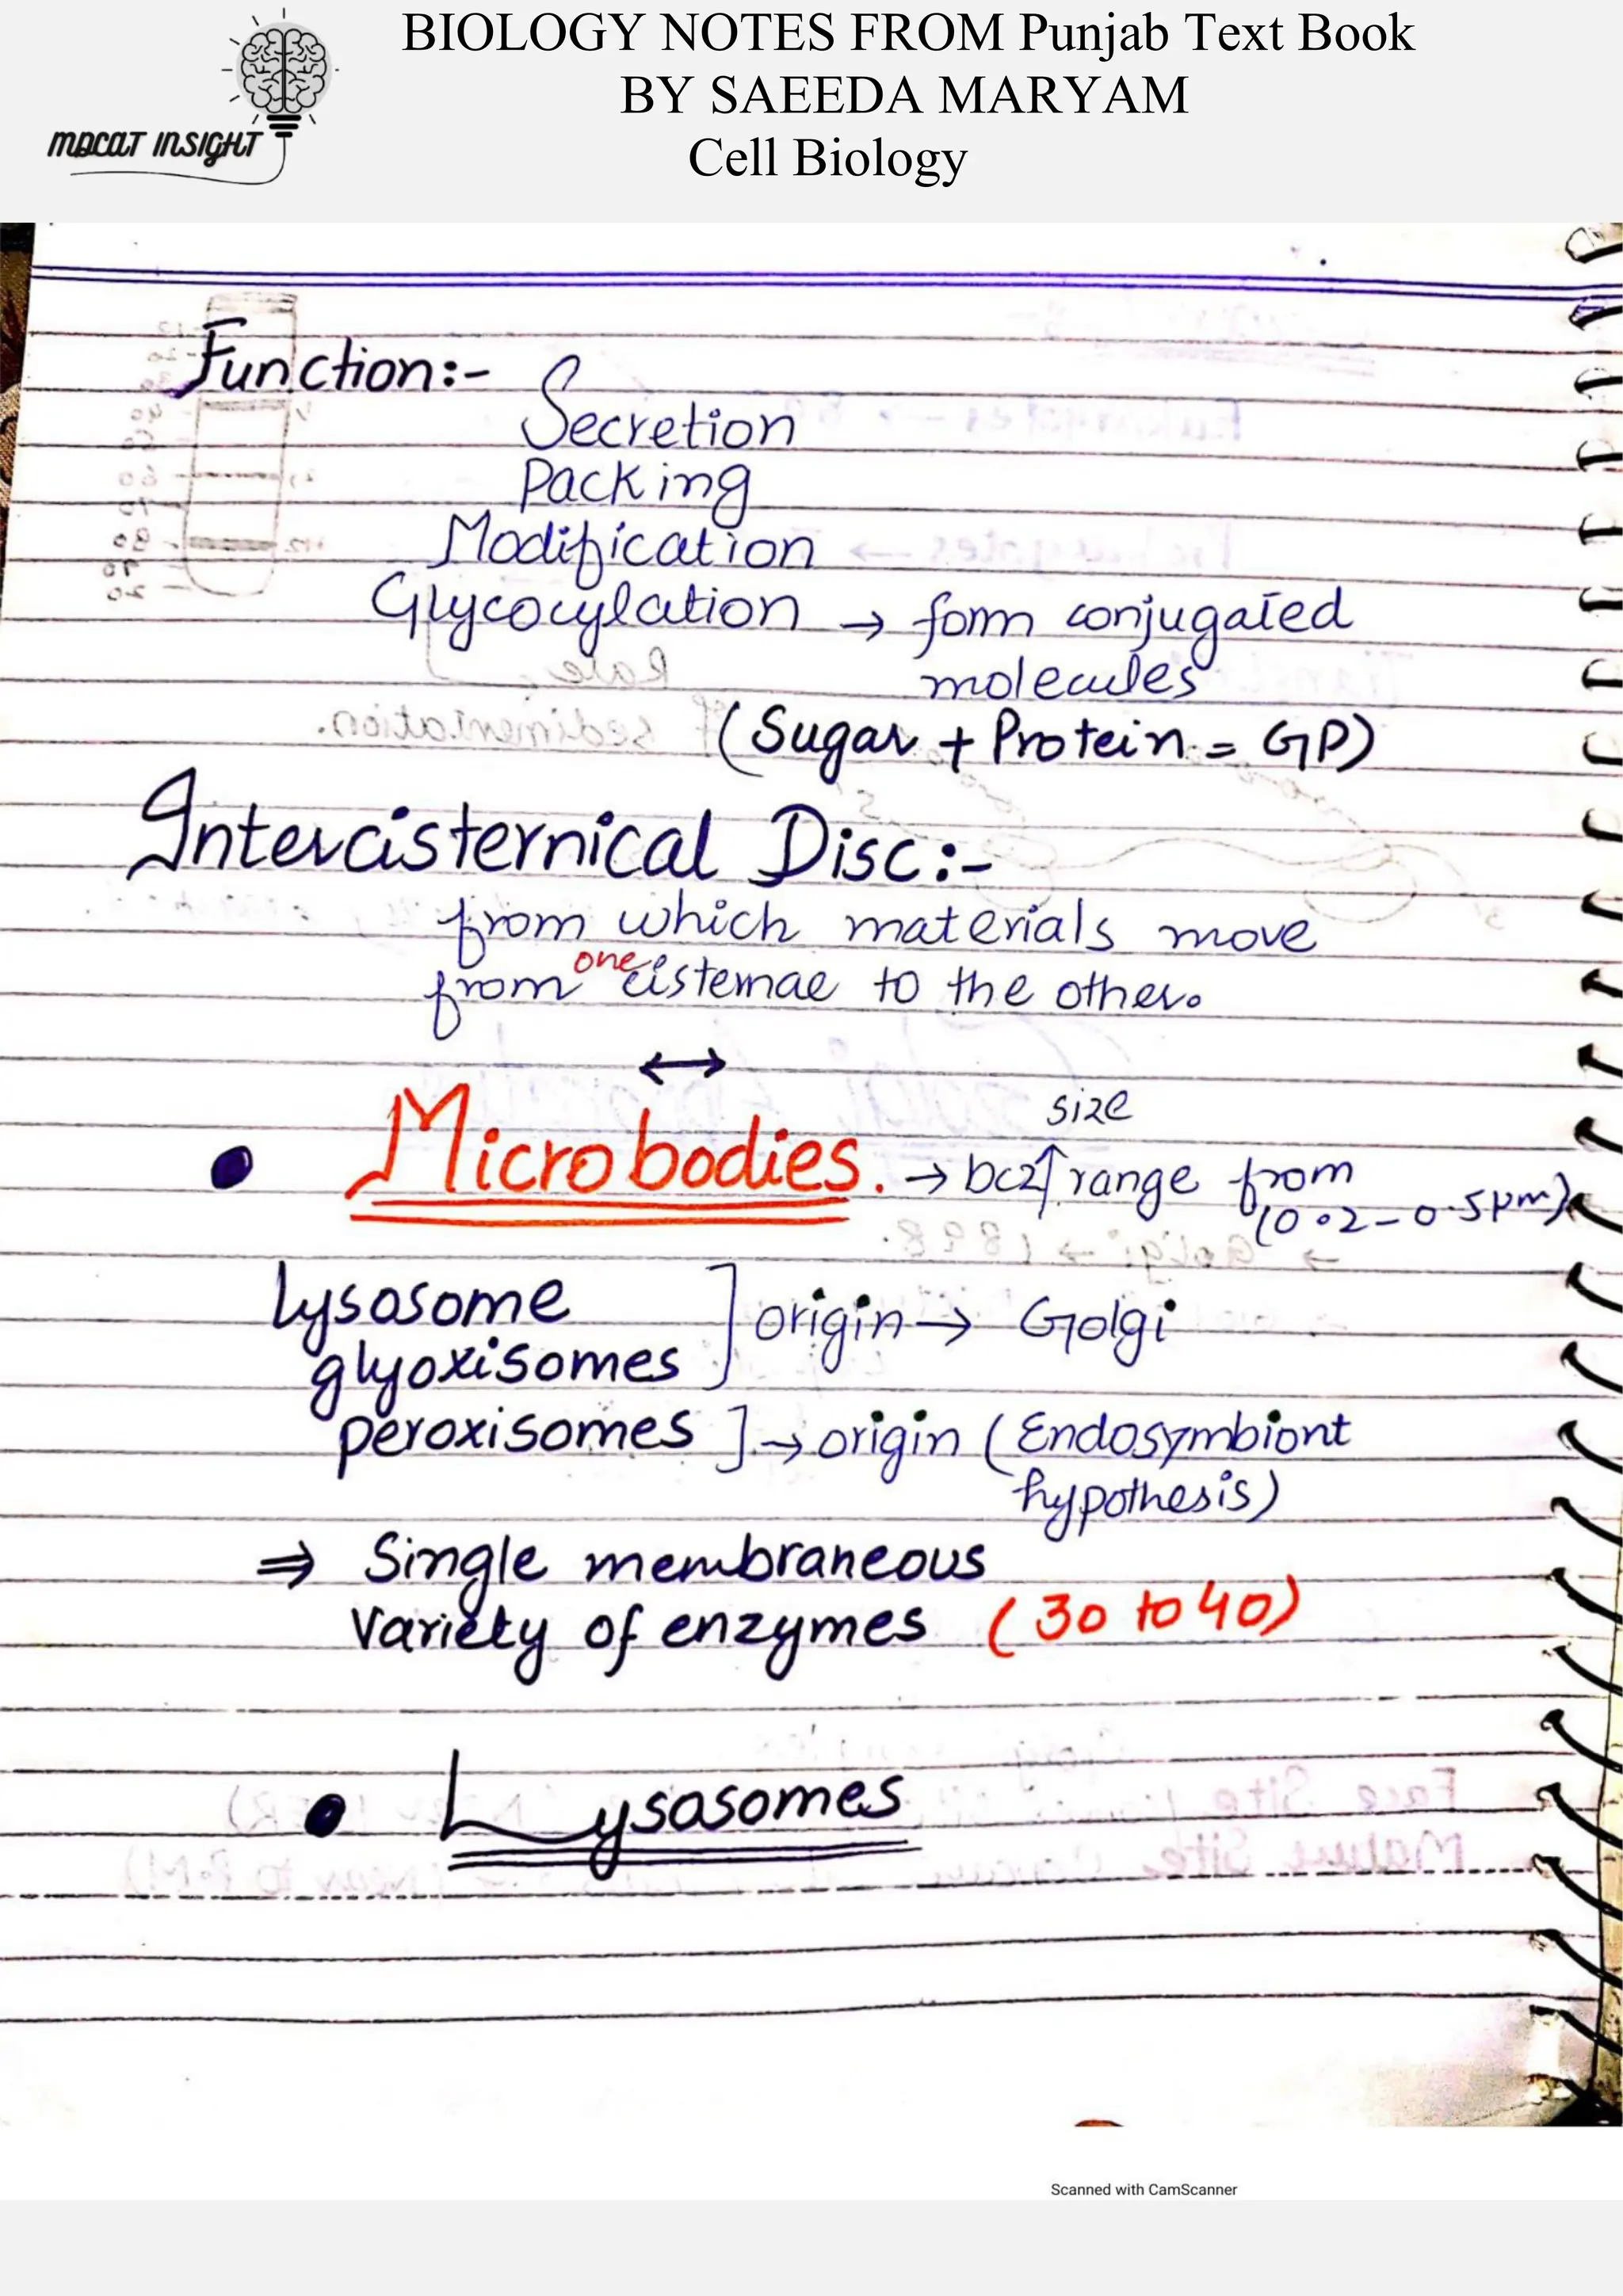 BIOLOGY NOTES FROM Punjab Text Book
BY SAEEDA MARYAM
MDCAT INSIGHT
Cell Biology
Function:-
Secretion
Packing
Modification
Glycocylation → form conjugated
molecules
(Sugar + Protein = GP)
Intercisternical Disc:-
from which materials move
from one cisternae to the other.
↔
size
• Microbodies. → bcz↑ range from
(0.2-0.5µm)
Lysosome
glyoxisomes ] origin → Golgi
peroxisomes ] → origin (Endosymbiont
hypothesis)
⇒ Single membraneous
Variety of enzymes (30 to 40)
• Lysosomes
Scanned with CamScanner